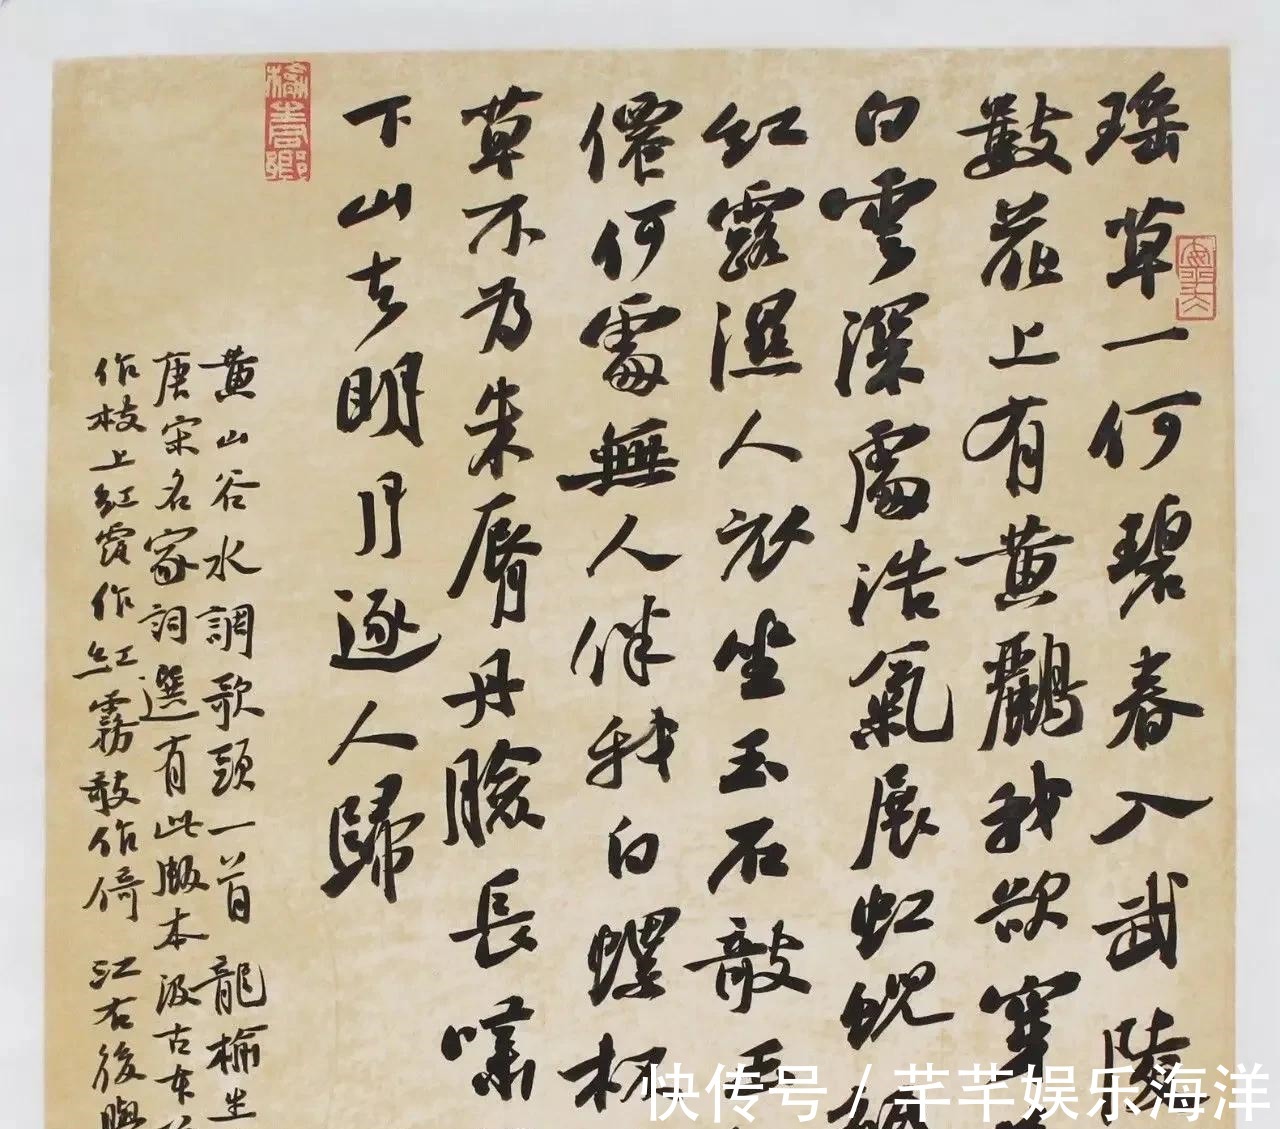 瑶草一何碧春入武陵
數花上有黄鸝我欲穿
白雲深處浩氣展虹蜺
紅露濕人衣坐玉石敲玉
僊何處無人伴我白螺杯
草不为朱脣丹臉長嘯
下山去明月逐人歸
黄山谷水調歌頭一首龍榆生
唐宋名家詞選有此版本汲古本
作枝上紅霞作紅霧敲作倚 江右後學
快传号 / 芊芊娱乐海洋